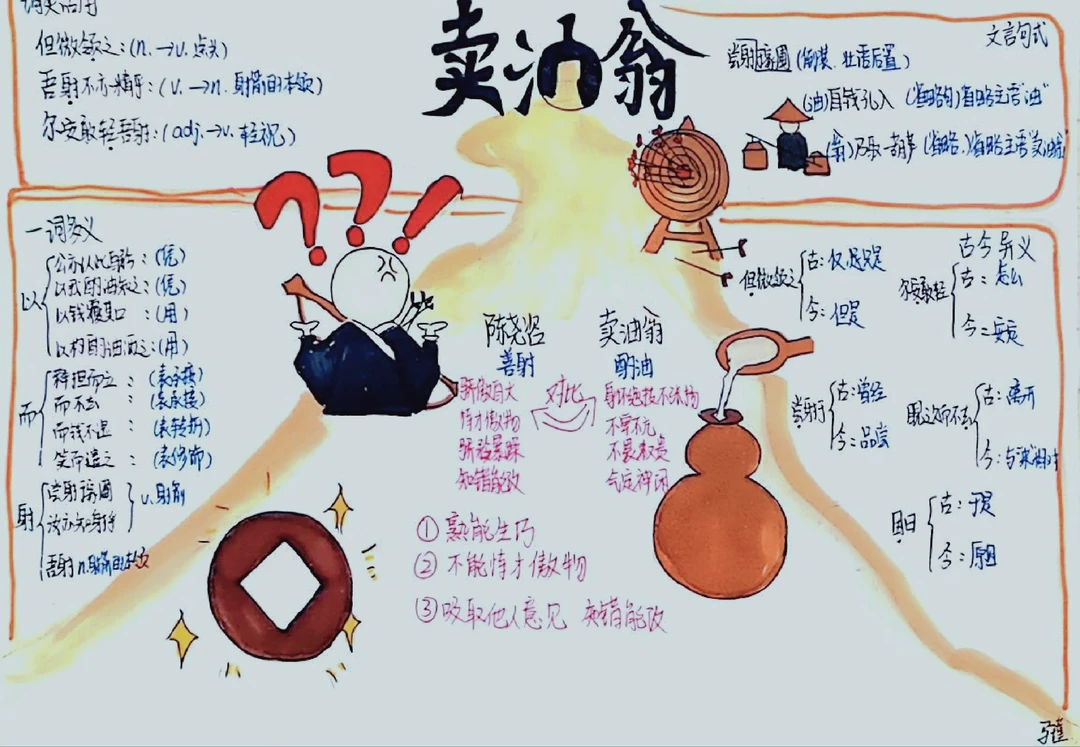 词类活用
但微颔之:(n.→v.点头)
吾射不亦精乎:(v.→n.射箭的本领)
尔安敢轻吾射:(adj.→v.轻视)
卖油翁
文言句式
尝射于家圃(倒装.状语后置)
(油)自钱孔入("省略句)省略主语"油"
(翁)乃取一葫芦(省略.)省略主语"卖油翁
一词多义
以
公亦以此自矜:(凭)
以我酌油知之:(凭)
以钱覆其口:(用)
以杓酌油沥之:(用)
而
释担而立:(表承接)
而不去:(表承接)
而钱不湿:(表转折)
笑而遣之:(表修饰)
射
尝射于家圃
汝亦知射乎
v.射箭
吾射 n.射箭的本领
???
陈尧咨
善射
骄傲自大
恃才傲物
骄躁暴躁
知错能改
对比
卖油翁
酌油
身怀绝技不张扬
不卑不亢
不畏权贵
气定神闲
①熟能生巧
②不能恃才傲物
③吸取他人意见
错能改
古今异义
但微颔之
古:仅是只是
今:但是
尔安敢轻
古:怎么
今:安定
尝射于
古:曾经
今:品尝
睨之久而不去
古:离开
今:与"来"相对
因曰
古:于是
今:原因